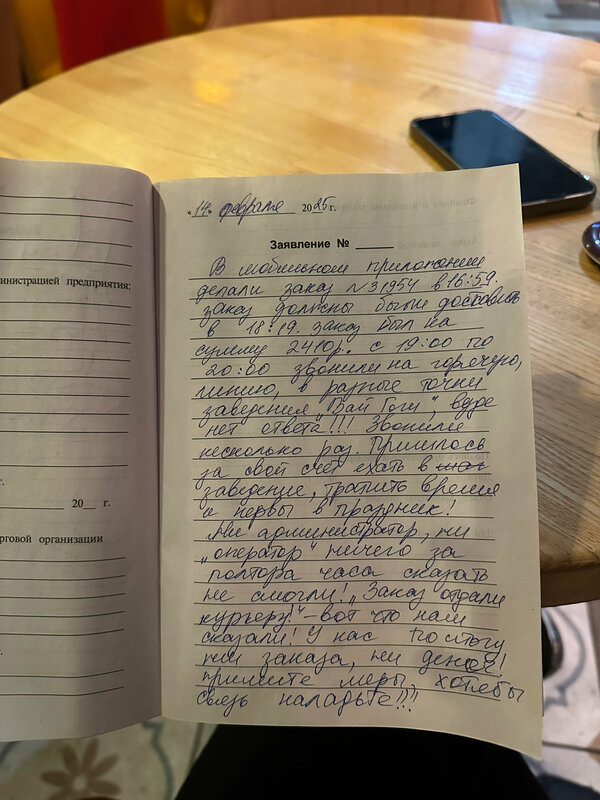 нистрацией предприятия:
г.
20__ г.
рговой организации
«14» февраля 2025 г.
Заявление № ______
В мобильном приложении
делали заказ №31954 в 16:59.
заказ должны были доставить
в 18:19. заказ был на
сумму 2410р. с 19:00 по
20:00 звонили на горячую,
линию, в разные точки
заведения „Вай Гоги", везде
нет ответа!!! Звонили
несколько раз. Пришлось
за свой счет ехать в
заведение, тратить время
и нервы в праздник!
Ни администратор, ни
„оператор" ничего за
полтора часа сказать
не смогли! „Заказ отдали
курьеру!" – вот что нам
сказали! У нас по итогу
ни заказа, ни денег!
примите меры, хотябы
связь наладьте!!!